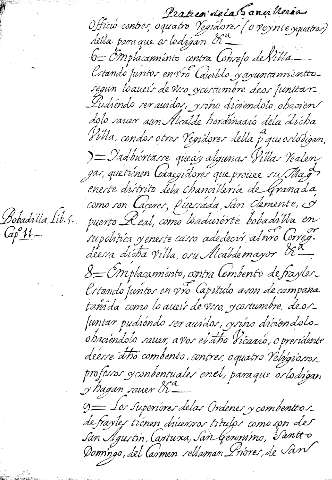 Pratica de la Chancilleria
Officio contres, o quatro Regidores (o veynte y quatros)
della para que os lo digan &ra
6= Emplacamiento contra Consejo de Villa
Estando juntos en vro Cavildo y ayuntamiento
segun lo aueis de vso, y costumbre de os juntar
Pudiendo ser auidos, y sino diciendolo, o hacien
dolo sauer a un Alcalde hordinario dela dicha
Villa, con dos otros Regidores della pa que os lo digan,
7= Y adbiertase que ay algunas Villas Realen
gas, que tienen Corregidores que provee su Magd
en este distrito dela Chancilleria de Granada
como son Caceres, Quessada, San Clemente, y
puerto Real, como lo aduierte bobadilla en
su politica y en este casso a de decir al vro Correg.
de essa dicha Villa, o su Alcalde mayor &ra
Bobadilla Lib. 5.
Cap. 11
8= Emplacamiento, contra Combento de frayles
Estando juntos en vro Capitulo a son de campana
tañida como lo aueis de vso, y costumbre, de os
juntar pudiendo ser auidos, y sino diciendolo
o haciendolo sauer, a vos el dho Vicario, o presidente
de esse dho combento, con tres, o quatro Religiosos
profesos y conbentuales en el, para que os lo digan
y hagan sauer &ra
9= Los Superiores de las Ordenes y combentos
de frayles tienen diuersos titulos como son de
San Agustin, Cartuxa, San Geronimo, Santto
Domingo, del Carmen se llaman Priores, de San